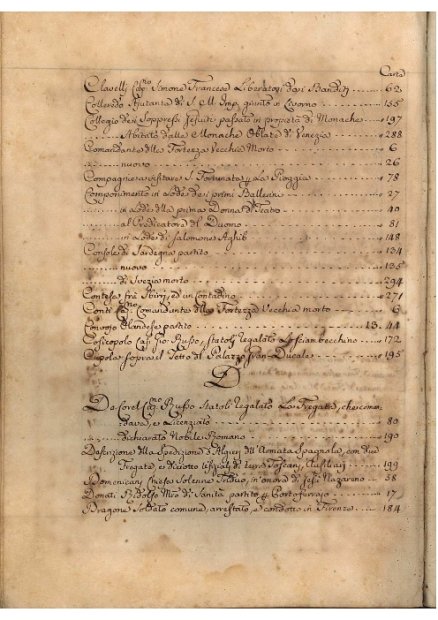 Carta
Clavelli Cap.no Simone Francesco Liberatosi dai Banditj 62
Colloredo Ajutante di S. M. Imp. giunto in Livorno 155
Collegio dei Soppressi Jesuiti passato in proprietà di Monache 197
Abitato dalle Monache Oblate di Venezia 288
Comandante della Fortezza Vecchia Morto 6
nuovo 26
Compagnie a visitare S. Fortunata p. La Pioggia 78
Componimento in Lode dei primi Ballerini 27
in Lode della prima Donna di Teatro 40
al Predicatore del Duomo 81
in Lode di Salomone Aghib 148
Console di Sardegna partito 134
nuovo 135
di Svezia morto 294
Contesa frà Sbirri, ed un Contadino 271
Conti Cap.no Comandante della Fortezza Vecchia morto 6
Convojo Olandese partito 13. 44
Cap. Gio. Russo, Statoli regalato 172
Cupola sopra il Tetto di Palazzo Gran-Ducale 195
D
Da Corel Cap.no Russo Statoli regalato La Fregata, che comandava, e Licenziato 80
dichiarato Nobile Romano 190
Descrizione della Spedizione d'Algieri dell'Armata Spagnola, con due
Fregate, e di Toscani, Ausiliarj 199
Domenicani Chiesa Solenne Triduo, in onore di Jesù Nazareno 38
Donati Ridolfo Mro di Sanità partito p. Portoferrajo 17
Dragone Soldato comune, arrestato, e condotto in Firenze 184